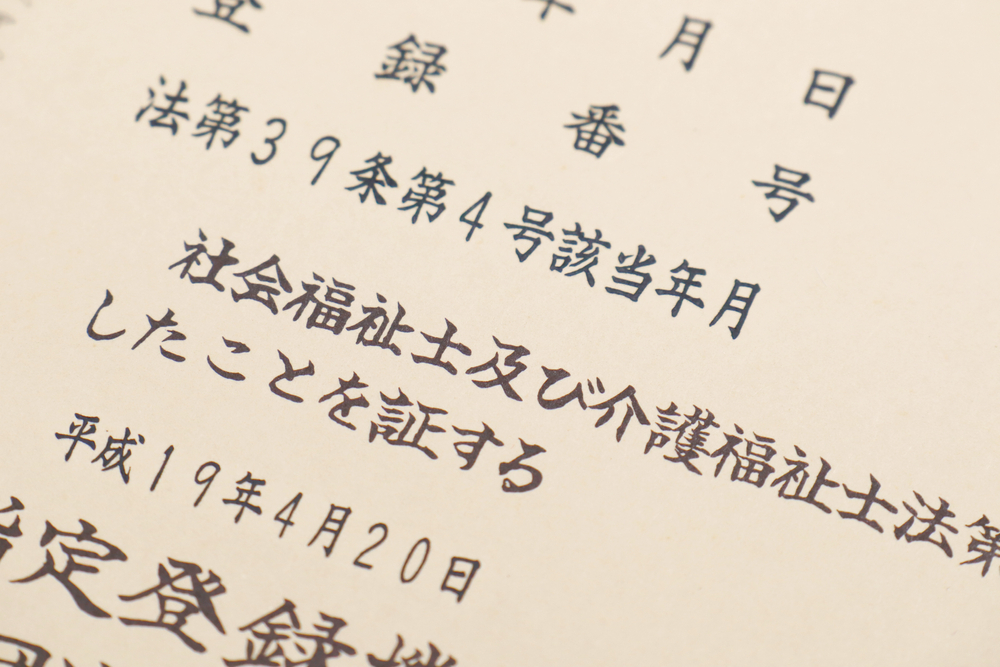 年月日
登録番号
法第39条第4号該当年月
社会福祉士及び介護福祉士法第
したことを証する
平成19年4月20日
指定登録機